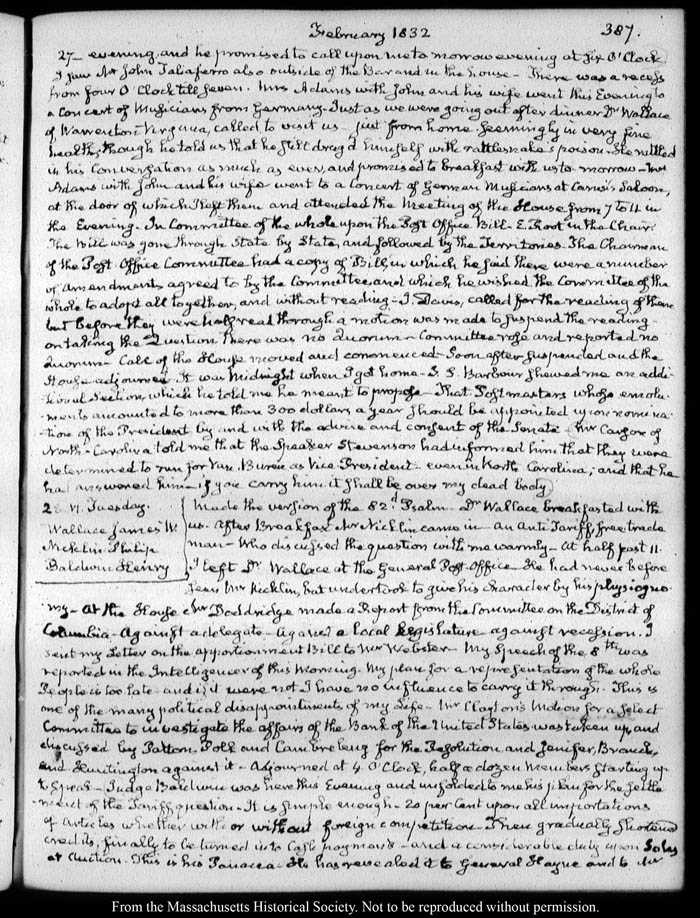 February 1832 387.
27 - evening, and he promised to call upon me to morrow evening at Six O'Clock
I saw Mr John Taliaferro also outside of the Bar and in the house - There was a recess
from four O'Clock till seven. Mrs Adams with John and his wife went this Evening to
a Concert of Musicians from Germany - Just as we were going out after dinner Dr Wallace
of Warrenton Virginia, called to visit us - just from home - seemingly in very fine
health; though he told us that he still drug'd himself with rattlesnake's poison - He rattled
in his Conversation as much as ever, and promised to breakfast with us to-morrow - Mrs
Adams with John and his wife went to a Concert of German Musicians at Carusi's Saloon,
at the door of which I left them and attended the Meeting of the House from 7 to 11 in
the Evening - In Committee of the whole upon the Post Office Bill - E. Root in the Chair.
The Bill was gone through State by State, and followed by the Territories. The Chairman
of the Post Office Committee had a copy of Bill, in which he said there were a number
of amendments agreed to by the Committee, and which he wished the Committee of the
whole to adopt all together, and without reading - J. Davis, called for the reading of them
but before they were half read thorough a motion was made to suspend the reading -
on taking the Question there was no Quorum - Committee rose and reported no
Quorum - Call of the House moved and commenced - Soon after suspended and the
House adjourned. It was Midnight when I got home - J. S. Barbour shewed me an addi-
-tional Section, which he told me he meant to propose - That Postmasters whose emolu-
-ments amounted to more than 300 dollars a year should be appointed upon nomina-
-tion of the President by and with the advice and consent of the Senate - Mr Carson of
North-Carolina told me that the Speaker Stevenson had informed him that they were
determined to run for Van Buren as Vice President - even in North Carolina; and that he
had answered him - if you carry him it shall be over my dead body
28. VI. Tuesday. Made the version of the 82d Psalm - Dr Wallace breakfasted with
Wallace James W. us. After Breakfast Mr Nicklin came in - an Anti Tariff, free trade
Nicklin Philip man - Who discussed the question with me warmly - At half past 11.
Baldwin Henry I left Dr Wallace at the General Post-Office - He had never before
seen Mr Nicklin, but undertook to give his character by his physiogno-
my - At the House Mr Doddridge made a Report from the Committee on the District of
Columbia - Against a delegate - Against a local legislature against recession. I
sent my Letter on the apportionment Bill to Mr Webster - My Speech of the 8th was
reported in the Intelligencer of this Morning - My plan for a representation of the whole
People is too late - and if it were not I have no influence to carry it through. This is
one of the many political disappointments of my Life - Mr Clayton's Motion for a select
Committee to investigate the affairs of the Bank of the United States was taken up, and
discussed by Patton, Polk and Cambreleng for the Resolution and Jenifer, Branch,
and Huntington against it - Adjourned at 4 O'Clock, half a dozen Members starting up
to speak - Judge Baldwin was here this Evening and unfolded to me his plan for the settle-
-ment of the Tariff question - It is simple enough - 20 per Cent upon all importations
of articles whether with or without foreign competition - Then gradually shortened
credits, finally to be turned into Cash payments - and a considerable duty upon Sales
at Auction. This is his Panacea - He has revealed it to General Hayne and to Mr
From the Massachusetts Historical Society. Not to be reproduced without permission.